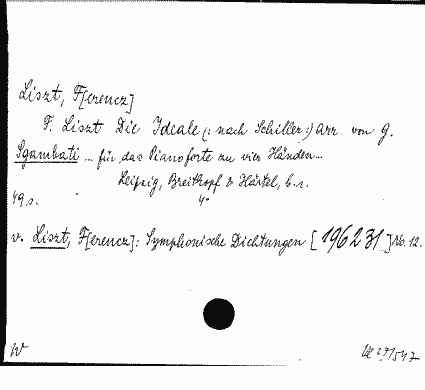 Liszt, F[erencz]
F. Liszt Die Ideale (: nach Schiller :) Arr. von G.
Sgambati ... für das Pianoforte zu vier Händen...
Leipzig, Breitkopf & Härtel, b.r.
49 s. 4°
v. Liszt, F[erencz]: Symphonische Dichtungen [196231] No. 12.
W